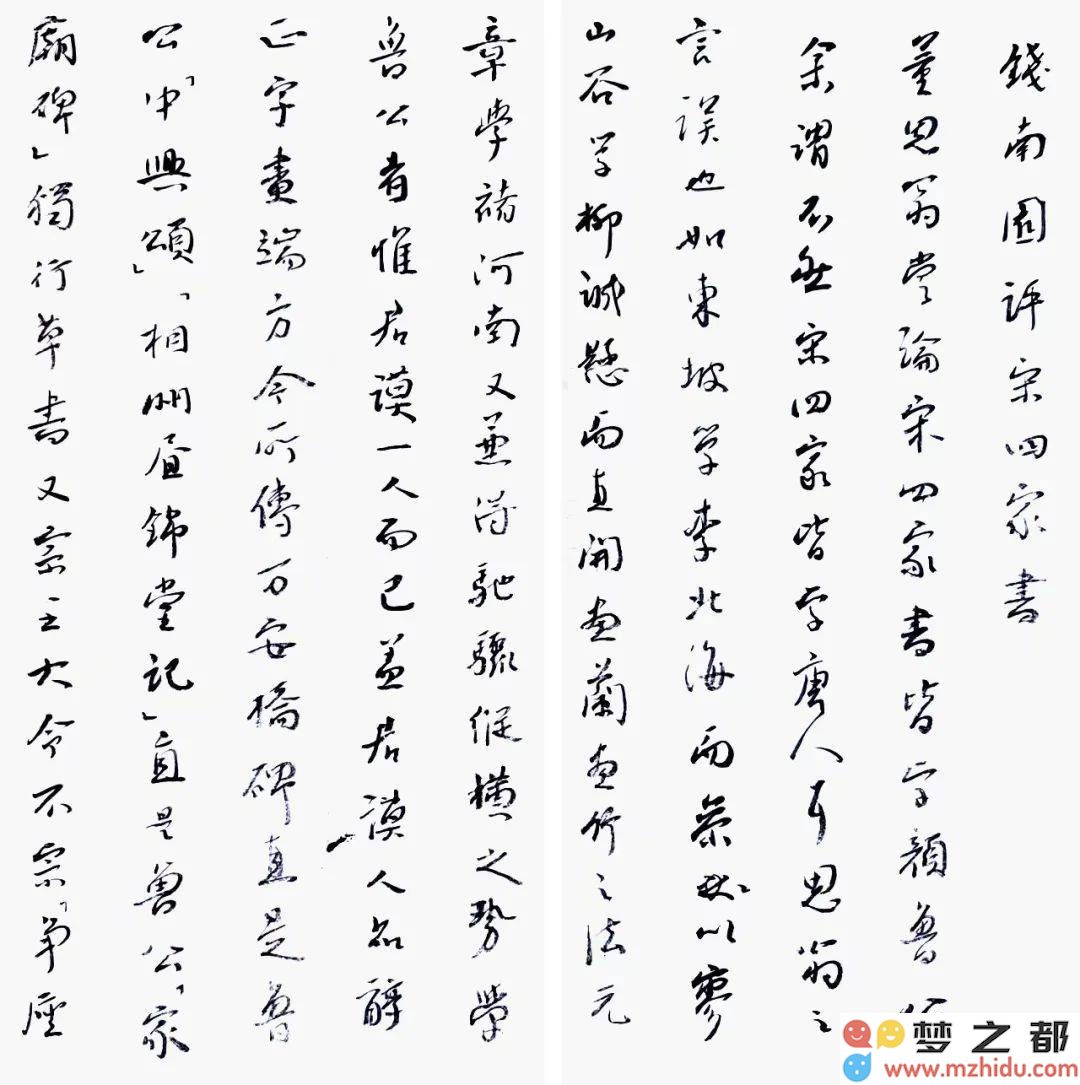 錢南園評宋四家書
董思翁嘗論宋四家書皆学顏魯公
余謂不然宋四家皆学唐人耳思翁之
言誤也如東坡学李北海而參以寥
山谷学柳誠懸而直開畫蘭畫竹之法元
章學褚河南又兼得馳驟縱橫之勢學
魯公者惟君謨一人而已蓋君謨人品醇
正字畫端方今所傳万安橋碑直是魯
公「中興頌」「相州昼錦堂記」直是魯公「家
廟碑」獨行草書又宗王大令不宗「爭座
梦之都
www.mzhidu.com